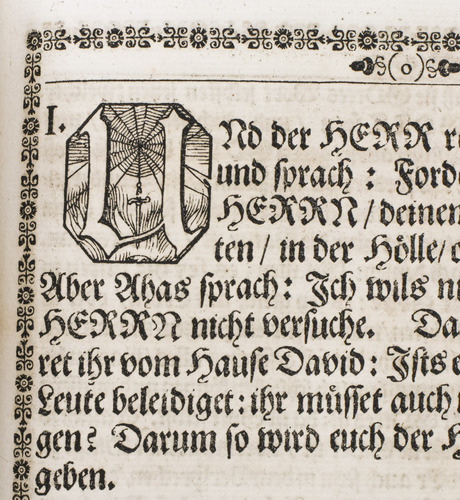 (o)
I. UNd der HERR r
und sprach: Ford
HERRN / deinen
ten / in der Hölle /
Aber Ahas sprach: Ich wils n
HERRN nicht versuche. Da
ret ihr vom Hause David: Ists
Leute beleidiget: ihr müsset auch
gen? Darum so wird euch der H
geben.